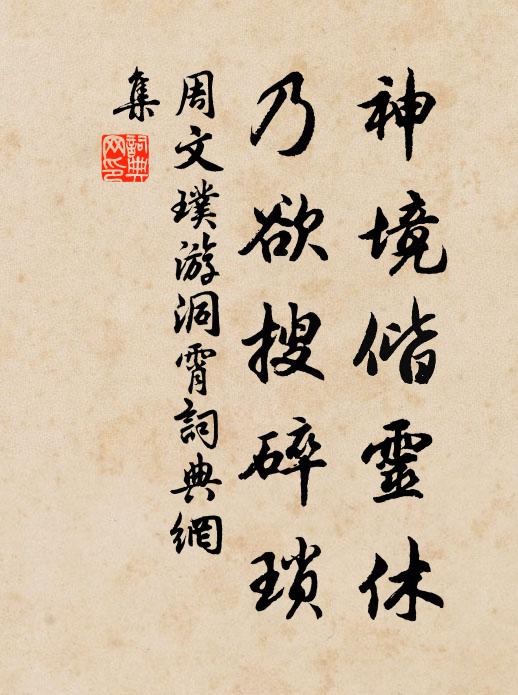 神境偕靈休
乃欲搜碎瑣
周文璞游洞霄詞典網
集
詞典
网印